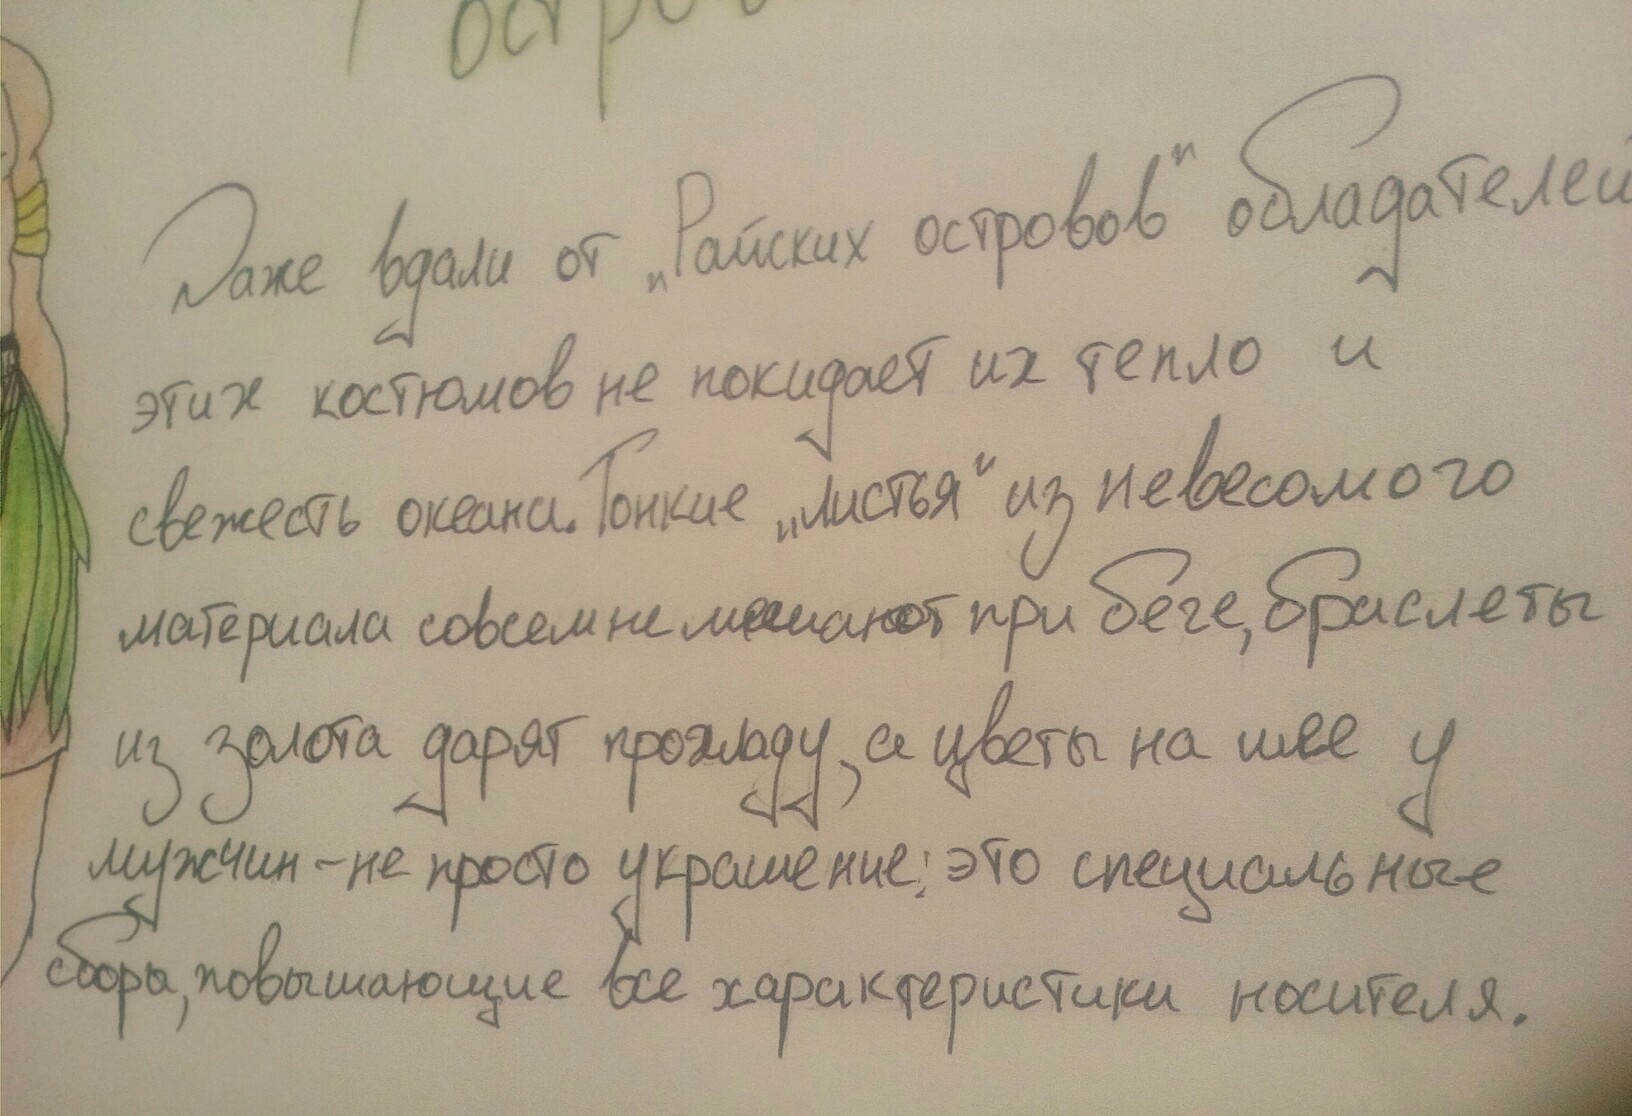 Даже вдали от „Райских островов" обладателей
этих костюмов не покидает их тепло и
свежесть океана. Тонкие „листья" из невесомого
материала совсем не мешают при беге, браслеты
из золота дарят прохладу, а цветы на шее у
мужчин – не просто украшение: это специальные
сборы, повышающие все характеристики носителя.